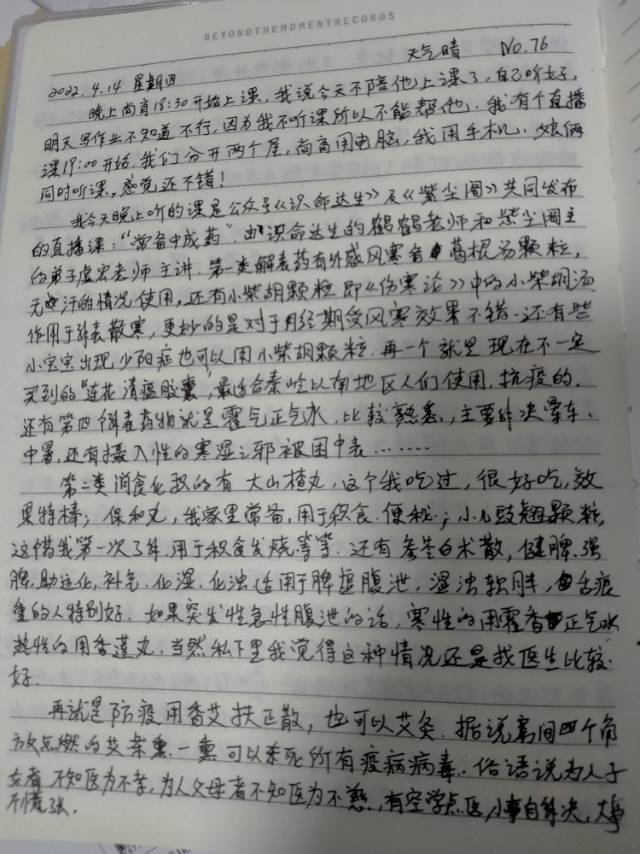 BEYONDTHEMOMENTRECORDS
天气晴 No.76
2022.4.14 星期四
晚上尚育18:30开始上课,我说今天不陪他上课了,自己听好,
明天写作业不知道不行,因为我不听课所以不能帮他,我有个直播
课19:00开始,我们分开两个屋,尚高用电脑,我用手机,娘俩
同时听课,感觉还不错!
我今天晚上听的课是公众号《识命达生》及《紫尘阁》共同发布
的直播课:“常备中成药”由识命达生的鹤鹤老师和紫尘阁主
的弟子虚宏老师主讲.第一类解表药有外感风寒音葛根汤颗粒,
无汗的情况使用,还有小柴胡颗粒即《伤寒论》中的小柴胡汤
作用于解表散寒,更妙的是对于月经期受风寒效果不错.还有些
小宝宝出现少阳症也可以用小柴胡颗粒.再一个就是现在不一定
买到的“连花清瘟胶囊”最适合秦岭以南地区人们使用,抗疫的.
还有第四个解表药物就是霍气正气水,比较熟悉,主要解决晕车、
中暑,还有摄入性的寒湿之邪被困中表……
第二类消食化积的有大山楂丸,这个我吃过,很好吃,效
果特棒;保和丸,我家里常备,用于积食.便秘.;小儿豉翘颗粒,
这借我第一次了解,用于积食发烧等等.还有参苓白术散,健脾.强
脾,助运化,补气.化湿.化浊适用于脾虚腹泄,湿浊软胖,舌痕
重的人特别好.如果突发性急性腹泄的话,寒性的用霍香正气水
热性的用香莲丸,当然私下里我觉得这种情况还是找医生比较
好.
再就是防疫用香艾扶正散,也可以艾灸.据说房间四个角
放点燃的艾条熏一熏可以杀死所有疫病病毒.俗语说为人子
女者不知医为不孝,为人父母者不知医为不慈,有空学点医,小事自解决,大事
不慌张.